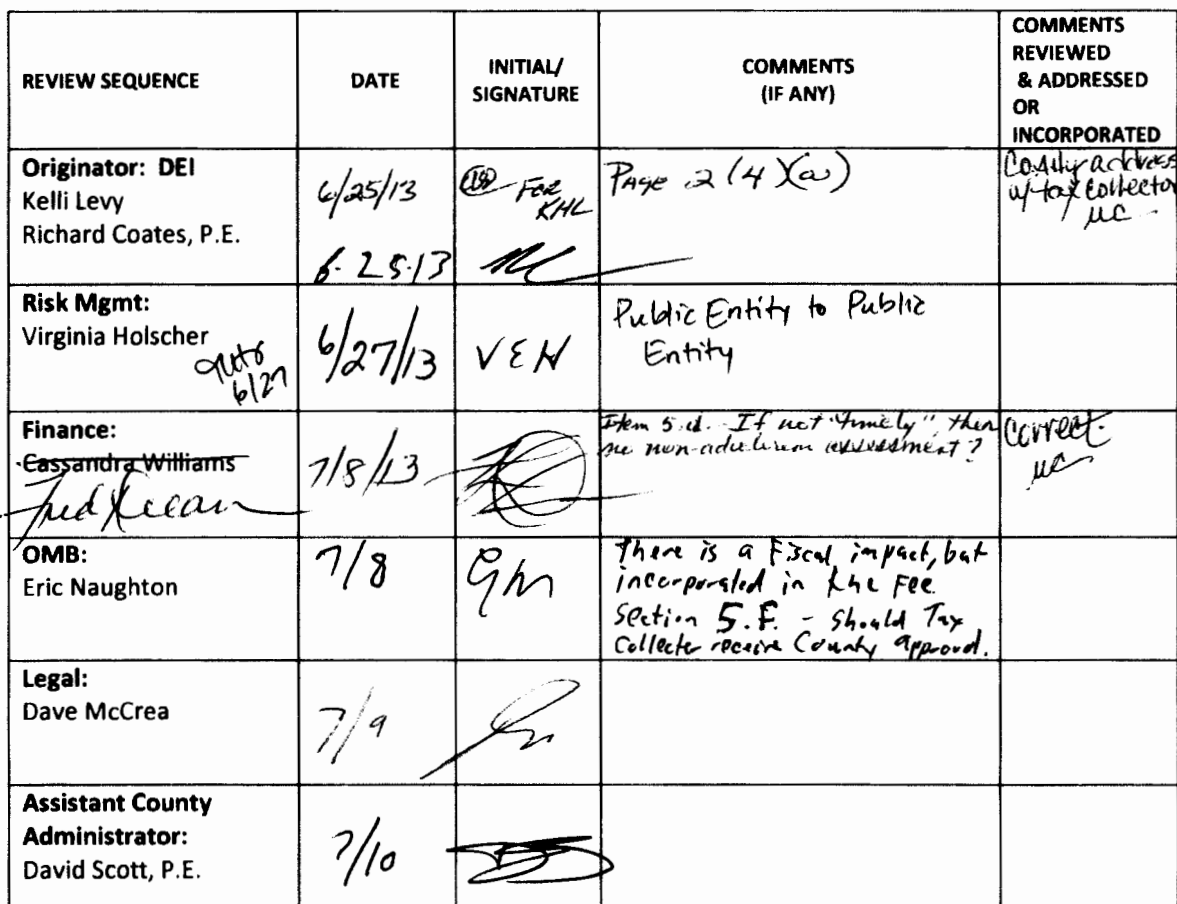 REVIEW SEQUENCE
DATE
INITIAL/
SIGNATURE
COMMENTS
(IF ANY)
COMMENTS
REVIEWED
& ADDRESSED
OR
INCORPORATED
Originator: DEI
Kelli Levy
Richard Coates, P.E.
6/25/13
6-25-13
FOR
KHL
PAge 2 (4)(a)
address
w/ tax collector
Risk Mgmt:
Virginia Holscher
6/27
6/27/13
VEH
Public Entity to Public
Entity
Finance:
Cassandra Williams
Fred
7/8/13
Item 5.d. If not "timely", then
no non-ad valorem assessment?
correct
OMB:
Eric Naughton
7/8
There is a Fiscal impact, but
incorporated in the Fee.
Section 5.F. - Should Tax
Collector receive County approval.
Legal:
Dave McCrea
7/9
Assistant County
Administrator:
David Scott, P.E.
7/10